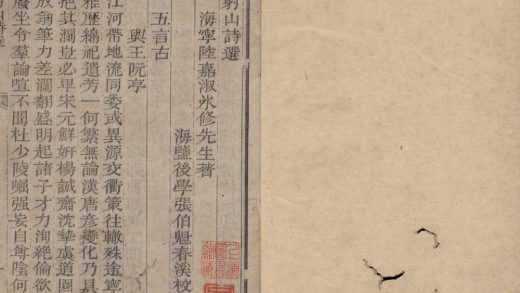 射山詩選
海寧陸嘉淑氷修先生著
海鹽後學張伯魁春溪校
五言古
與王阮亭
江河帶地流同委或異源交衢策往轍殊途寧
雅歷綿祀遺芳一何繁無論漢唐彥變化乃具
挹其瀾豈必卑宋元鮮妍楊誠齋沈摯虞道園
放翁筆力差瀾翻盛明起諸子才力洵絕倫欲
廢坐令羣論喧不聞杜少陵崛强妄自尊陰何